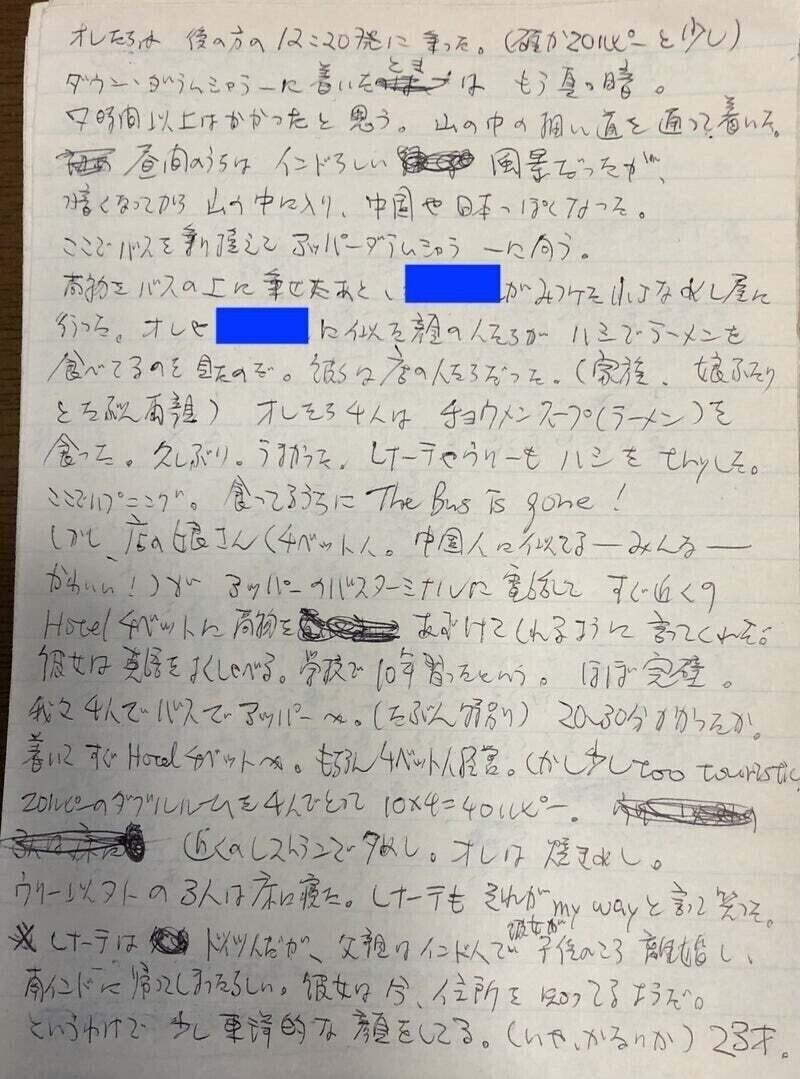 オレたちは 後の方の 12:20発に 乗った。(確か20ルピーと少し)
ダウン・ダラムシャラーに着いたときは もう真っ暗。
7時間以上はかかったと思う。山の中の細い道を通って着いた。
昼間のうちは インドらしい 風景だったが、
暗くなってから 山の中に入り、中国や日本っぽくなった。
ここでバスを乗り換えて アッパーダラムシャラーに向う。
荷物をバスの上に乗せたあと、 がみつけた小さなめし屋に
行った。オレや に似た顔の人たちが ハシでラーメンを
食べてるのを見たのだ。彼らは店の人たちだった。(家族、娘ふたり
とたぶん両親) オレたち4人は チョウメンスープ(ラーメン)を
食った。久しぶり。うまかった。レナーテやウリーも ハシをtryした。
ここでハプニング。食ってるうちに The Bus is gone!
しかし、店の娘さん(チベット人。中国人に似てる—みんな—
かわいい!)が アッパーのバスターミナルに電話して すぐ近くの
Hotel チベットに荷物を あずけてくれるように言ってくれた。
彼女は英語をよくしゃべる。学校で10年習ったという。ほぼ完璧。
我々4人でバスでアッパーへ。(たぶん 別) 20~30分かかったか。
着いてすぐHotelチベットへ。もちろんチベット人経営。しかし少しtoo touristic
20ルピーのダブルルームを4人でとって 10×4=40ルピー。
近くのレストランで夕めし。オレは 焼きめし。
ウリー以外の3人は床に寝た。レナーテも それがmy wayと言って笑った。
レナーテは ドイツ人だが、父親はインド人で彼女が子供のころ 離婚し、
南インドに帰ってしまったらしい。彼女は今、住所を知ってるようだ。
というわけで 少し東洋的な顔をしてる。(いや、かなりか) 23才。